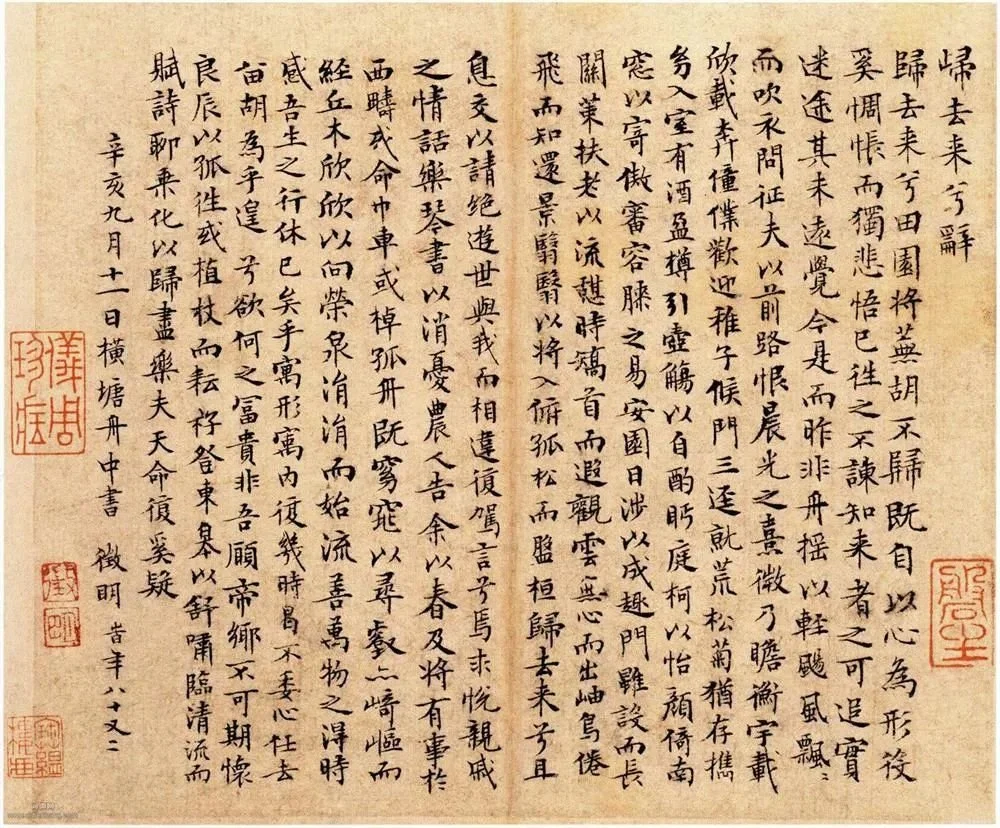 歸去来兮辭
歸去来兮田園将蕪胡不歸既自以心為形役
奚惆悵而獨悲悟已往之不諫知来者之可追實
迷途其未遠覺今是而昨非舟揺以輊颺風飄〻
而吹衣問征夫以前路恨晨光之熹微乃瞻衡宇載
欣載奔僮僕歡迎稚子候門三逕就荒松菊猶存攜
幼入室有酒盈樽引壺觴以自酌眄庭柯以怡顏倚南
窓以寄傲審容膝之易安園日涉以成趣門雖設而長
關策扶老以流憩時矯首而遐觀雲無心而出岫鳥倦
飛而知還景翳翳以将入俯孤松而盤桓歸去来兮且
息交以請絕遊世與我而相違復駕言兮焉求悅親戚
之情話樂琴書以消憂農人告余以春及将有事於
西疇或命巾車或棹孤舟既窈窕以尋壑亦崎嶇而
経丘木欣欣以向榮泉涓涓而始流善萬物之得時
感吾生之行休已矣乎寓形寓内復幾時曷不委心任去
留胡為乎遑兮欲何之冨貴非吾願帝鄉不可期懷
良辰以孤往或植杖而耘耔登東皋以舒嘯臨清流而
賦詩聊乗化以歸盡樂夫天命復奚疑
辛亥九月十一日横塘舟中書 徵明 旹年八十又二
儀周珍藏
徵明